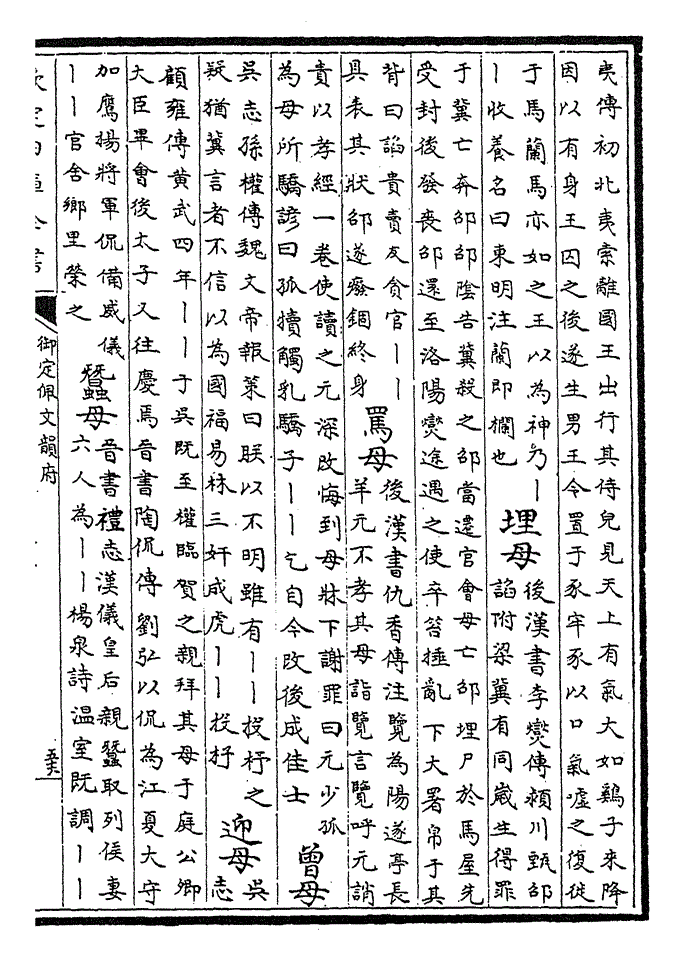 夷傳初北夷索離國王出行其侍兒見天上有氣大如雞子來降
因以有身王囚之後遂生男王令置于豕牢豕以口氣噓之復徙
于馬蘭馬亦如之王以為神乃丨
丨收養名曰東明注蘭即欄也
埋母
後漢書李燮傳潁川甄邵
諂附梁冀有同嵗生得罪
于冀亡奔邵邵隂告冀殺之邵當遷官會母亡邵埋尸於馬屋先
受封後發喪邵還至洛陽燮途遇之使卒笞捶亂下大署帛于其
背曰諂貴賣友貪官丨丨
具表其狀邵遂廢錮終身
罵母
後漢書仇香傳注覽為陽遂亭長
羊元不孝其母詣覽言覽呼元誚
責以孝經一卷使讀之元深改悔到母牀下謝罪曰元少孤
為母所驕諺曰孤犢觸乳驕子丨丨乞自今改後成佳士
曾母
吳志孫權傳魏文帝報策曰朕以不明雖有丨丨投杼之
疑猶冀言者不信以為國福易林三奸成虎丨丨投杼
迎母
吳
志
顧雍傳黄武四年丨丨于吳既至權臨賀之親拜其母于庭公卿
大臣畢會後太子又往慶焉晉書陶侃傳劉弘以侃為江夏大守
加鷹揚將軍侃備威儀
丨丨官舍鄉里榮之
蠶母
晉書禮志漢儀皇后親蠶取列侯妻
六人為丨丨楊泉詩温室既調丨丨
欽定四庫全書
御定佩文韻府